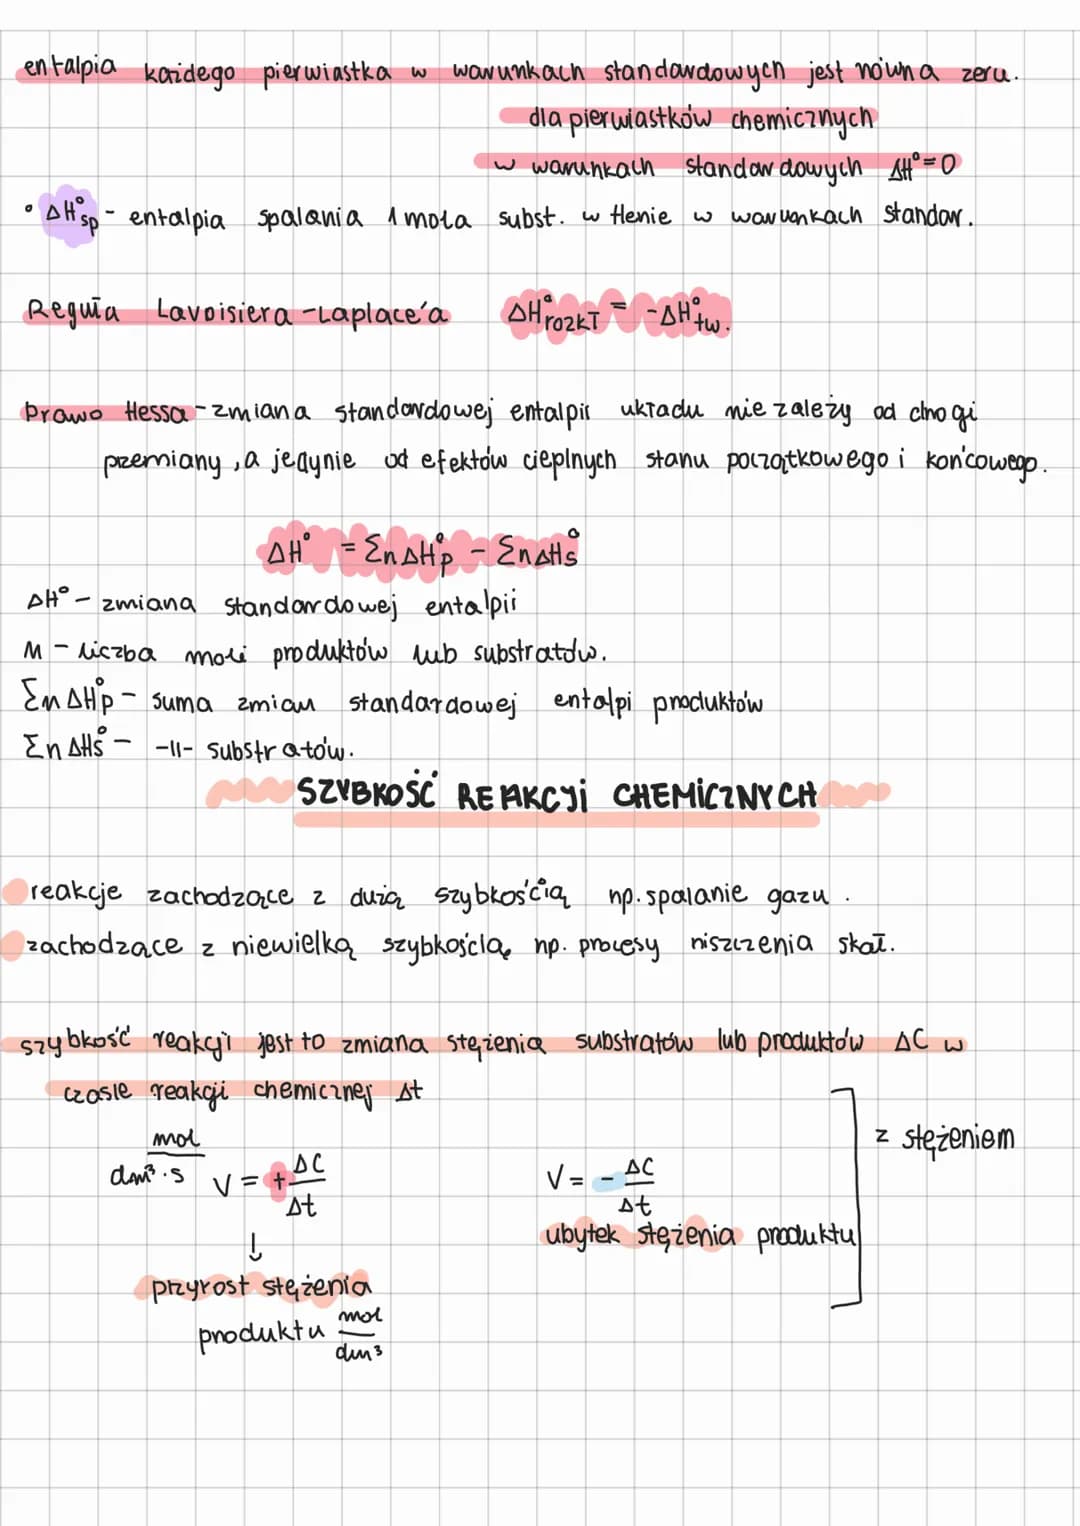 entalpia każdego pierwiastka w warunkach standardowych jest równa zeru.
dla pierwiastków chemicznych
w warunkach standardowych ΔH°=0
• ΔH°sp - entalpia spalania 1 mola subst. w tlenie w warunkach standar.
Reguła Lavoisiera-Laplace'a ΔH°rozkł = -ΔH°tw.
Prawo Hessa - zmiana standardowej entalpii układu nie zależy od drogi
przemiany, a jedynie od efektów cieplnych stanu początkowego i końcowego.
ΔH° = ΣnΔH°p - ΣnΔH°s
ΔH° - zmiana standardowej entalpii
n - liczba moli produktów lub substratów.
ΣnΔH°p - suma zmian standardowej entalpi produktów
ΣnΔH°s - -||- substratów.
SZYBKOŚĆ REAKCJi CHEMiCZNYCH
reakcje zachodzące z dużą szybkością np. spalanie gazu.
zachodzące z niewielką szybkością np. procesy niszczenia skał.
szybkość reakcji jest to zmiana stężenia substratów lub produktów ΔC w
czasie reakcji chemicznej Δt
mol/dm³·s V = + ΔC/Δt V = - ΔC/Δt z stężeniem
↓ ubytek stężenia produktu
przyrost stężenia
produktu mol/dm³